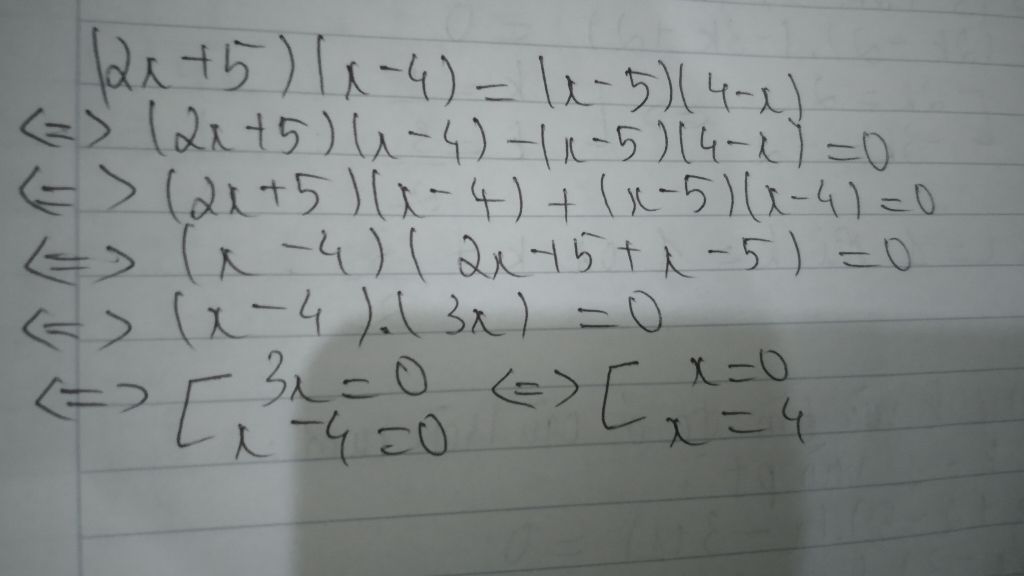 (2x+5)(x-4)=(x-5)(4-x)
<=> (2x+5)(x-4)-(x-5)(4-x)=0
<=> (2x+5)(x-4)+(x-5)(x-4)=0
<=> (x-4)(2x+5+x-5)=0
<=> (x-4).(3x)=0
<=> [ 3x=0 <=> [ x=0
x-4=0 x=4